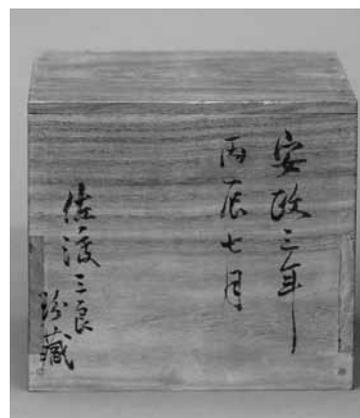 安政三年
丙辰七月
佐渡三良
珍藏